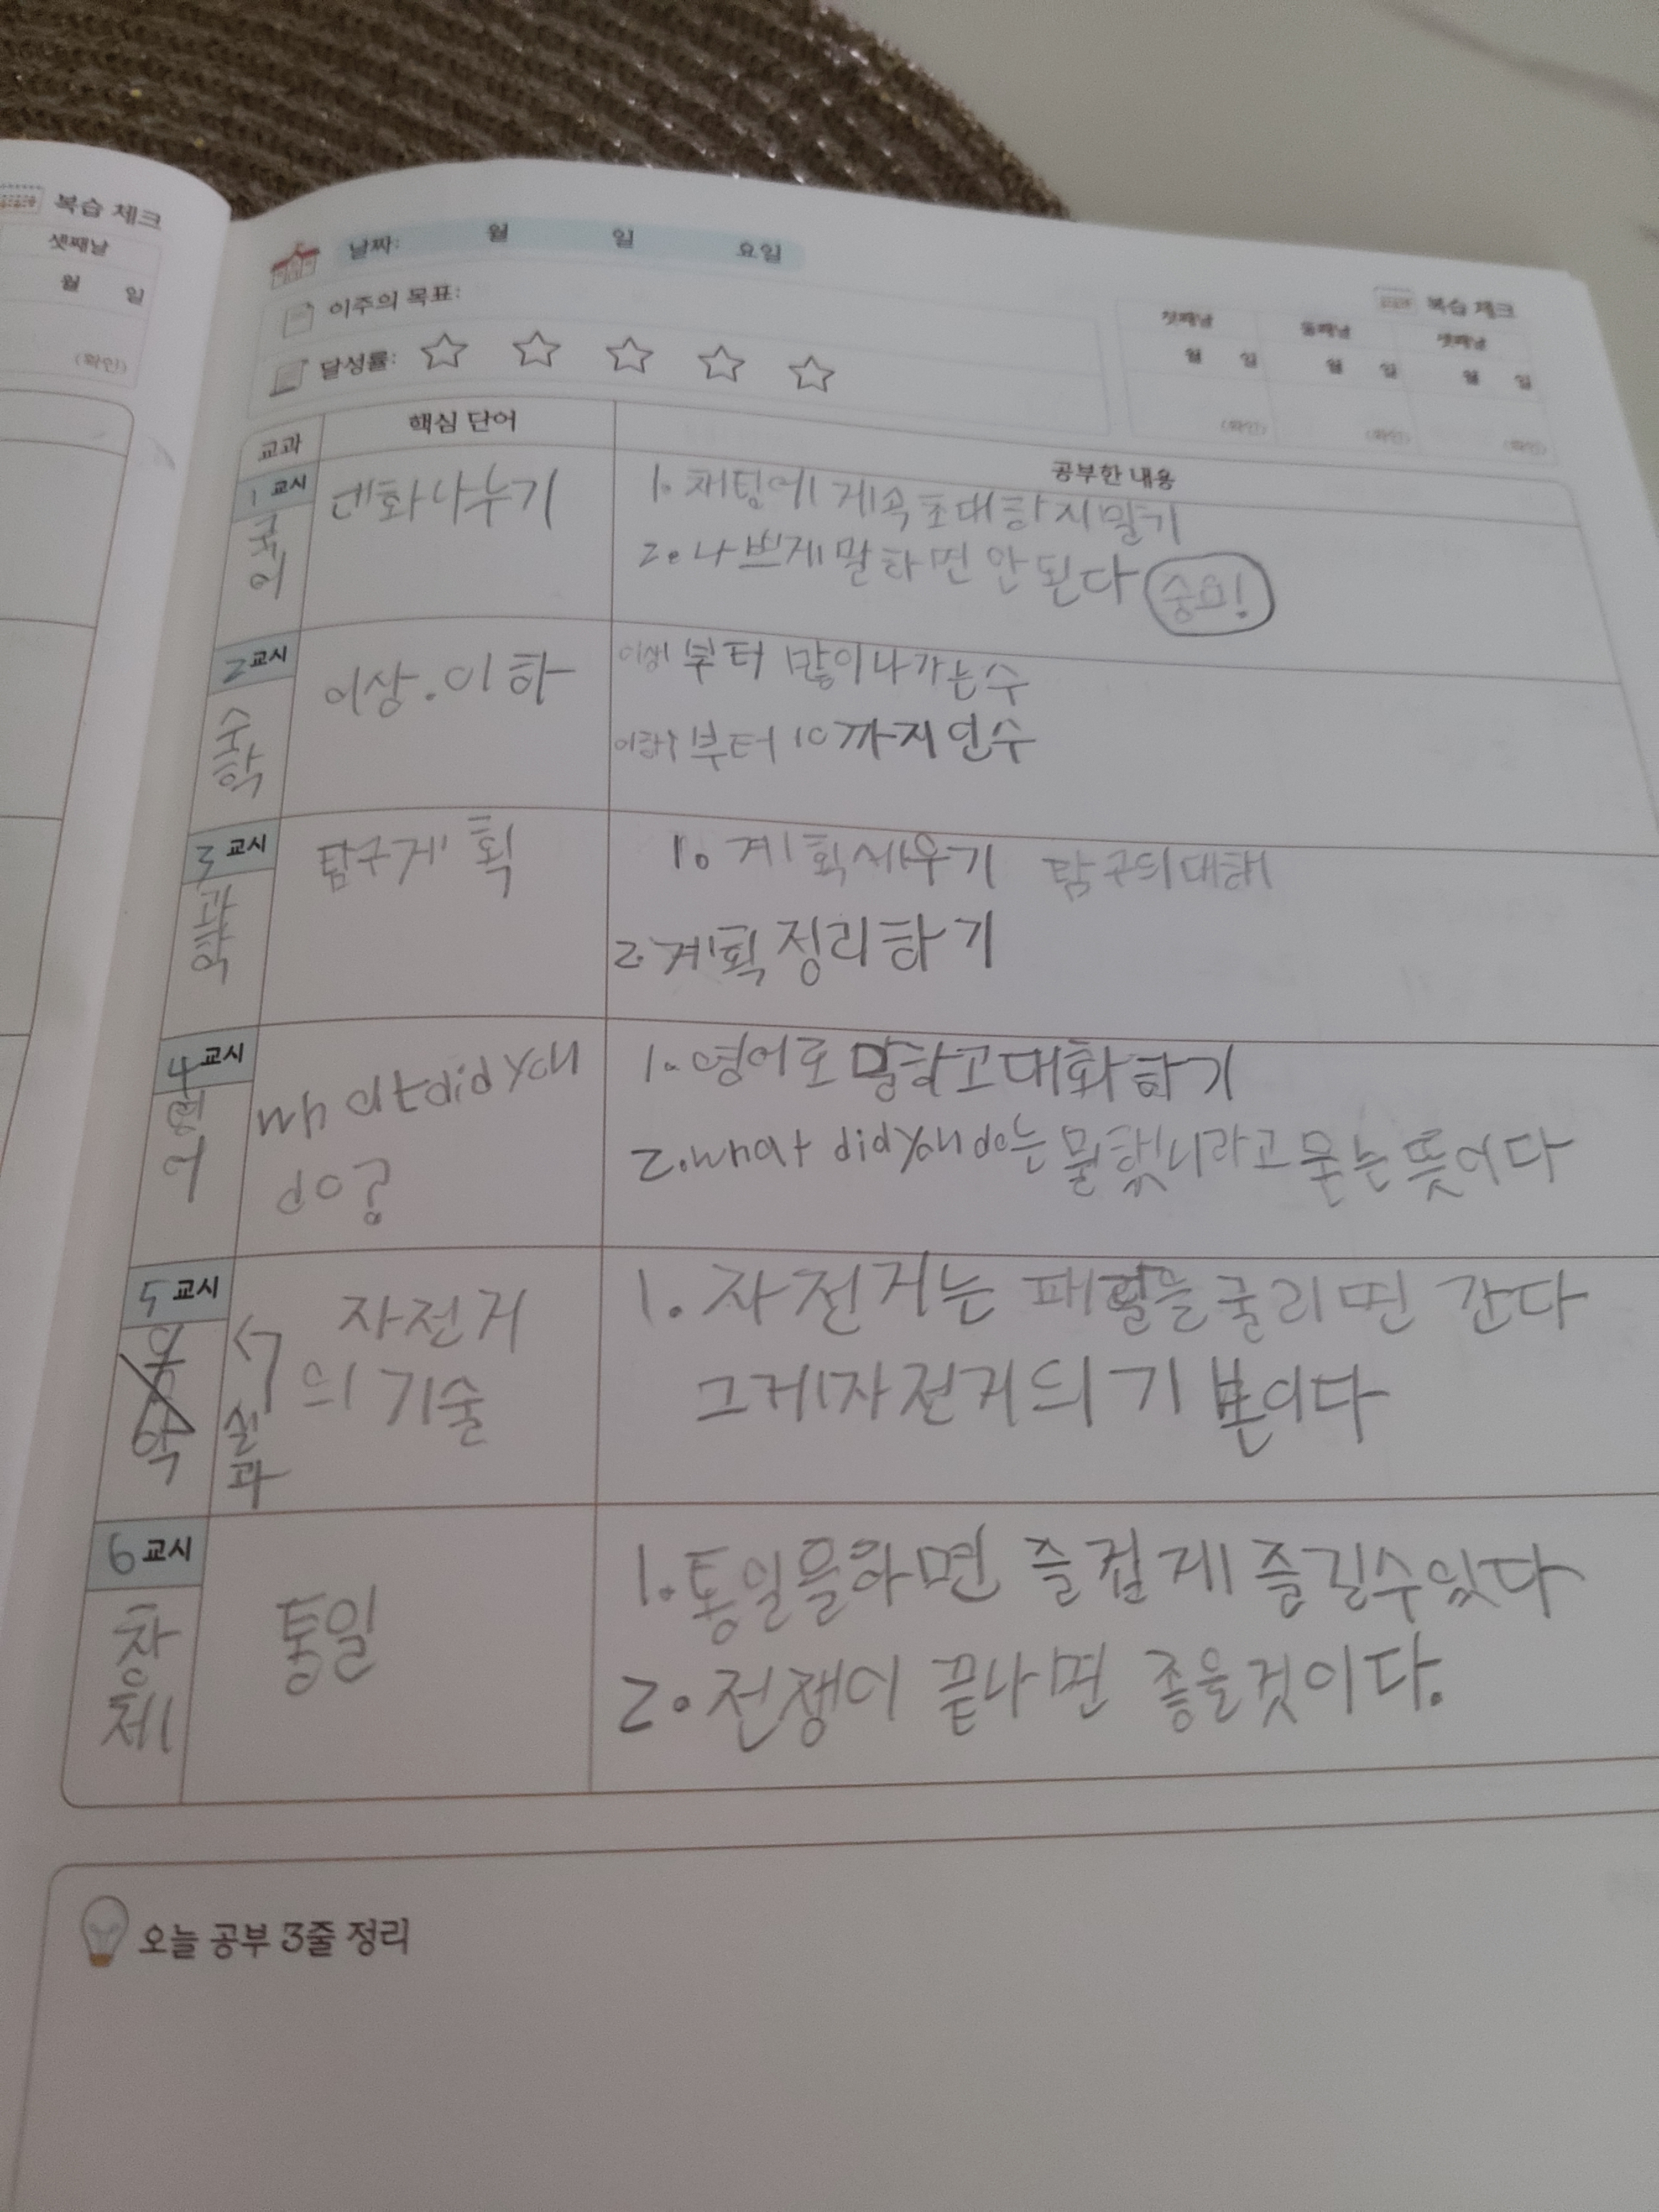 복습 체크
셋째날
월 일
(확인)
날짜: 월 일 요일
이주의 목표:
달성률:
복습 체크
첫째날 둘째날 셋째날
월 일 월 일 월 일
(확인) (확인) (확인)
교과 핵심 단어 공부한 내용
1 교시
국어
대화나누기
1. 채팅에 계속 초대하지말기
2. 나쁘게 말하면 안된다 중요!
2 교시
수학
이상.이하
이상 부터 많이나가는수
이하 부터 10까지인수
3 교시
과학
탐구계획
1. 계획세우기 탐구의대해
2. 계획 정리하기
4 교시
영어
what did you
do?
1. 영어로 말하고대화하기
2. what did you do는 뭘했니라고 묻는 뜻이다
5 교시
음악
실과
자전거
의 기술
1. 자전거는 패달을 굴리면 간다
그게자전거의 기본이다
6 교시
창체
통일
1. 통일을하면 즐겁게 즐길수있다
2. 전쟁이 끝나면 좋을것이다.
오늘 공부 3줄 정리